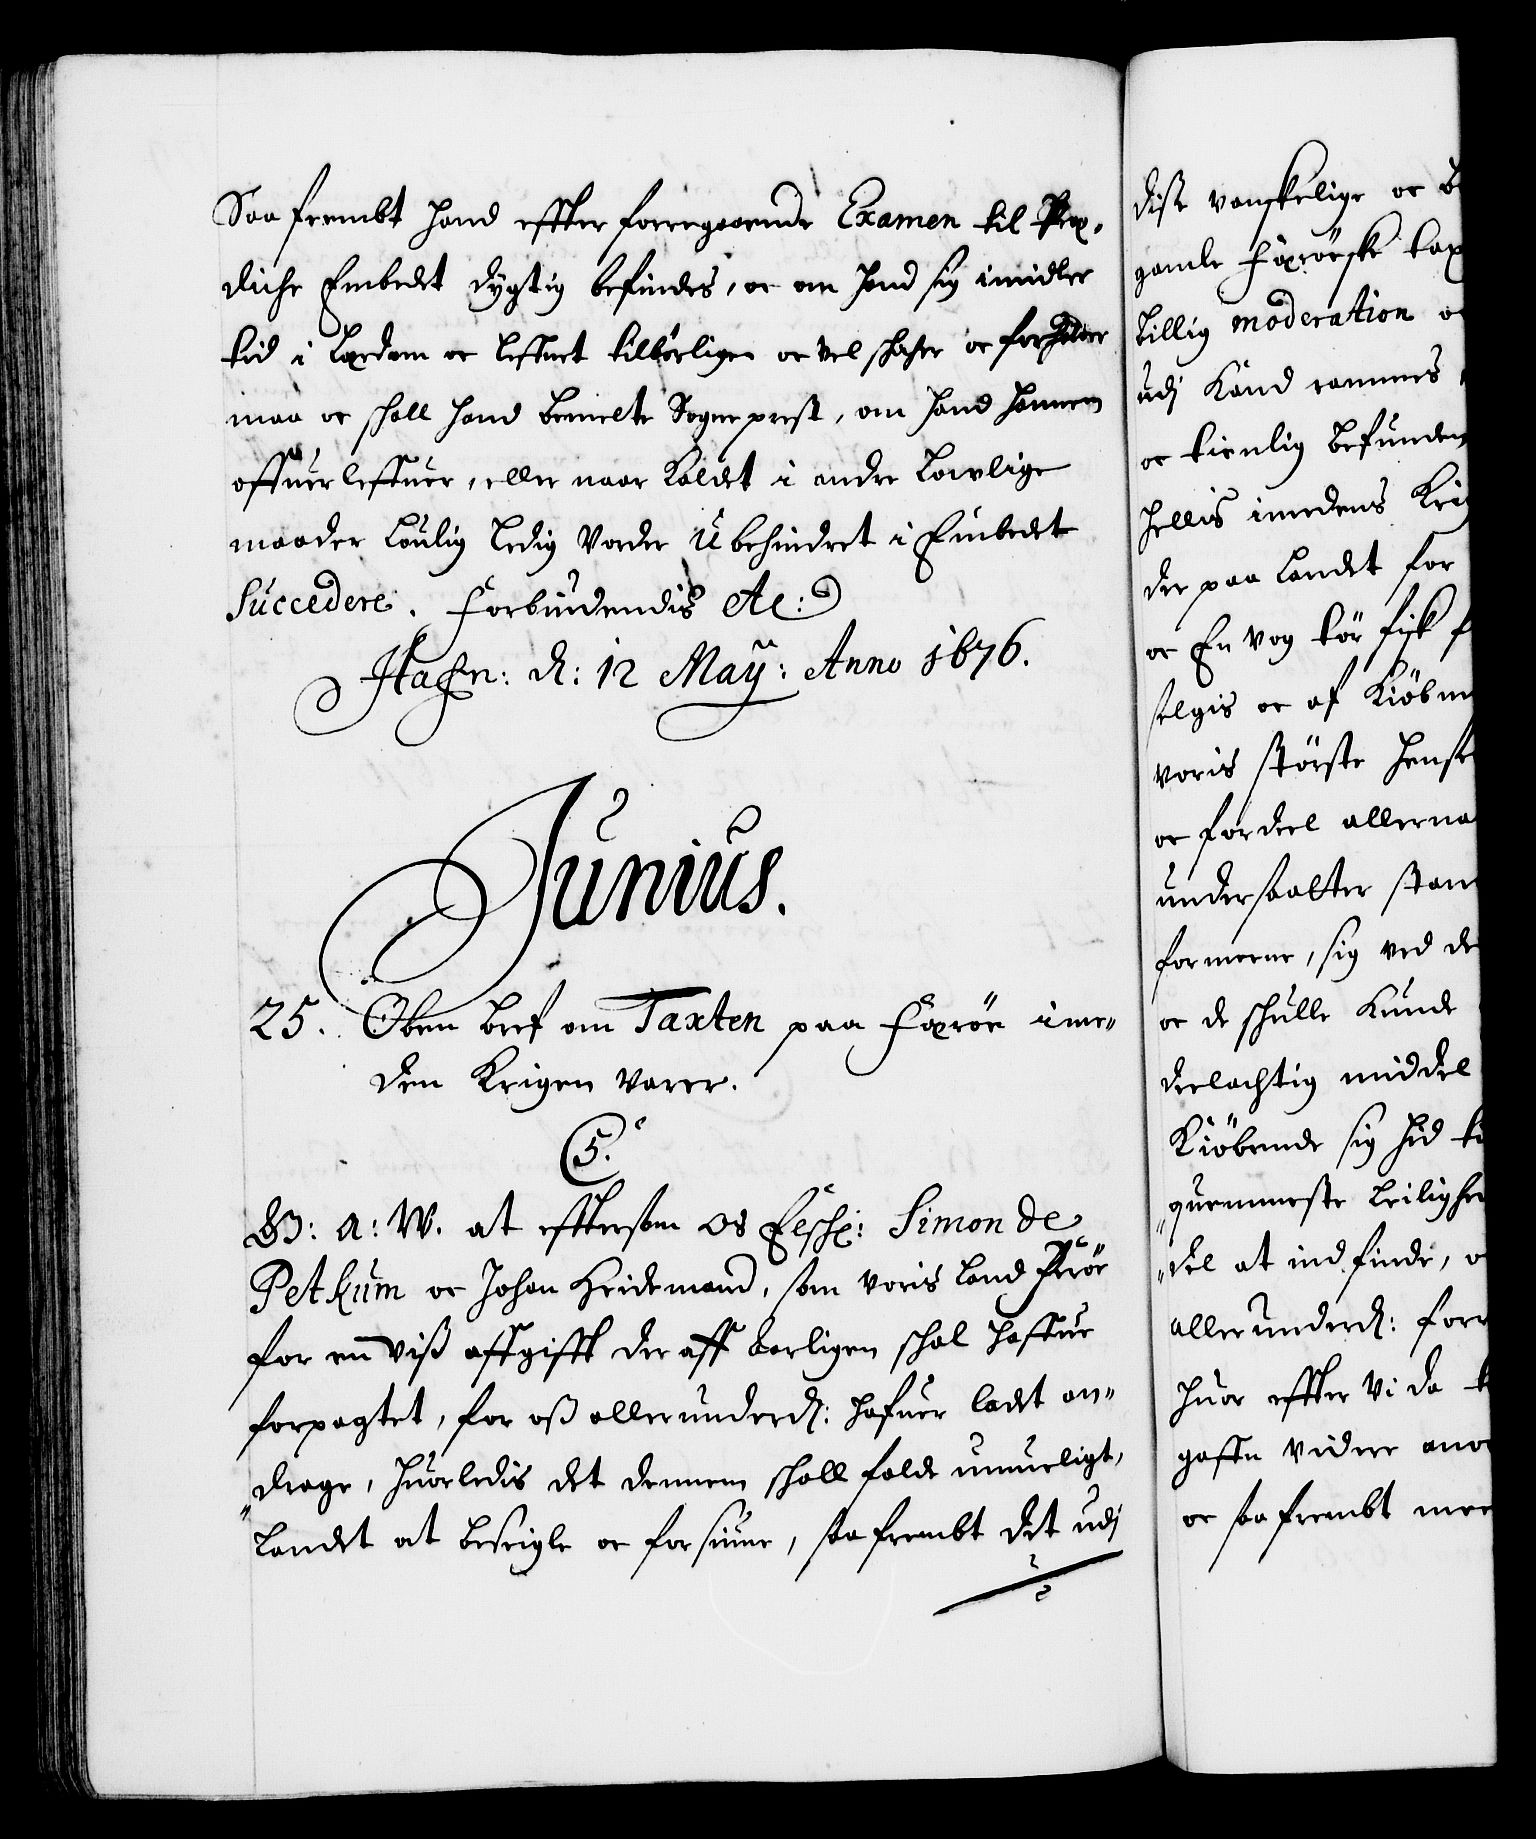 Saa frembt hand effter foregaaende Examen til Præ-
diche Embedet dygtig befindes, oc om hand sig imidler
tid i Lærdom oc lefnet tilbørligen oc vel skicher oc forholder
maa oc skall hand bemelte Sogneprest, om hand hannem
offuerleffuer, eller naar Kaldet i andre Lovlige
maader Loulig Ledig vorder Ubehindret i Embedet
Succedere. Forbiudendis etc:
Hafn: d: 12 Maÿ: Anno 1676.
Junius.
25. Oben bref om Taxten paa Færöe ime-
den Krigen varer.
C5.
G: a: W. at efftersom Os Elschl: Simon de
Petkum oc Johan Heidemand, som voris Land Færöe
for en viss affgifft der aff aarligen skal haffue
forpagtet, for oss allerunderd: hafuer ladet an-
drage, huorledis det dennem skall falde umueligt,
Landet at beseigle oc forsiune, saa frembt det udj
disse vanskelige oc be
gamle Færöeske tax
billig moderation oc
udj Kand rammes
oc tienlig befunden
hellis imedens Kri
der paa Landet for
oc En vog tör fisk f
selgis oc af Kiöbm
voris störste
oc fordeel allerna
undersaatter
formeene, sig ved de
oc de skulle Kunde
deelachtig middel
Kiöbende sig hid ti
quemmeste Leilighe
del at indfinde, o
allerunderd: for
huor effter Vi da
gaffn videre ano
oc saa frembt mee